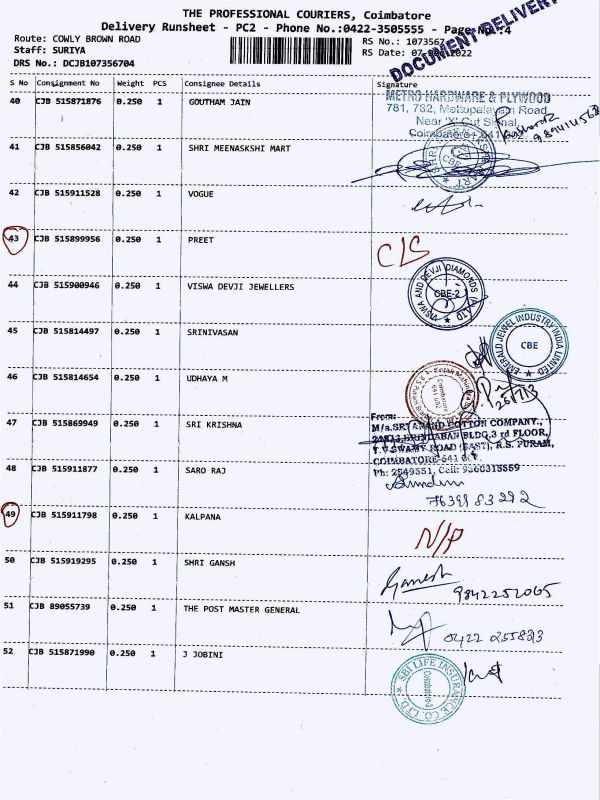 THE PROFESSIONAL COURIERS, Coimbatore
Delivery Runsheet - PC2 - Phone No.:0422-3505555 - Page No.:4
DOCUMENT DELIVERY
Route: COWLY BROWN ROAD
RS No.: 1073567
Staff: SURIYA
RS Date: 2022
DRS No.: DCJB107356704
S No Consignment No Weight PCS Consignee Details Signature
40 CJB 515871876 0.250 1 GOUTHAM JAIN
METRO HARDWARE & PLYWOOD
781, 782, Mettupalayam Road
Near 'X' Cut Signal
Coimbatore - 641 002
41 CJB 515856042 0.250 1 SHRI MEENASKSHI MART
CBE
42 CJB 515911528 0.250 1 VOGUE
43 CJB 515899956 0.250 1 PREET
CLS
44 CJB 515900946 0.250 1 VISWA DEVJI JEWELLERS
VISWA AND DEVJI DIAMONDS (P) LTD
CBE-2
45 CJB 515814497 0.250 1 SRINIVASAN
EMERALD JEWEL INDUSTRY INDIA LIMITED
CBE
46 CJB 515814654 0.250 1 UDHAYA M
Coimbatore
641 002
47 CJB 515869949 0.250 1 SRI KRISHNA
From:
M/s.SRI ANAND COTTON COMPANY.,
BRINDABAN BLDG,3 rd FLOOR,
T.V.SWAMY ROAD (EAST), R.S. PURAM,
COIMBATORE-641 002.
Ph: 2549551, Cell: 9360315559
48 CJB 515911877 0.250 1 SARO RAJ
76391 83292
49 CJB 515911798 0.250 1 KALPANA
N/P
50 CJB 515919295 0.250 1 SHRI GANSH
Ganesh
9842252065
51 CJB 89055739 0.250 1 THE POST MASTER GENERAL
0422 255823
52 CJB 515871990 0.250 1 J JOBINI
SBI LIFE INSURANCE CO. LTD.